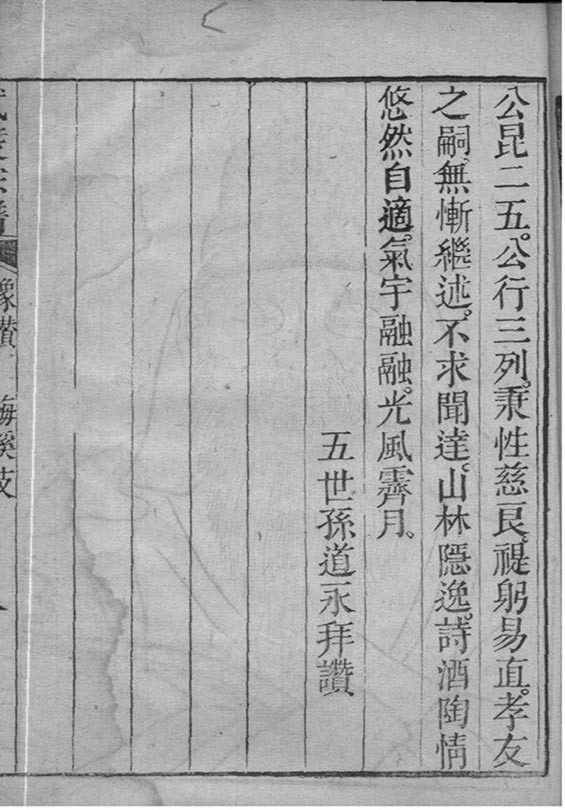 公昆二五。公行三列。秉性慈良。禔躬易直。孝友
之嗣。無慚繼述。不求聞達。山林隱逸。詩酒陶情
悠然自適。氣宇融融。光風霽月。
五世孫道永拜讚
像讃 梅溪支